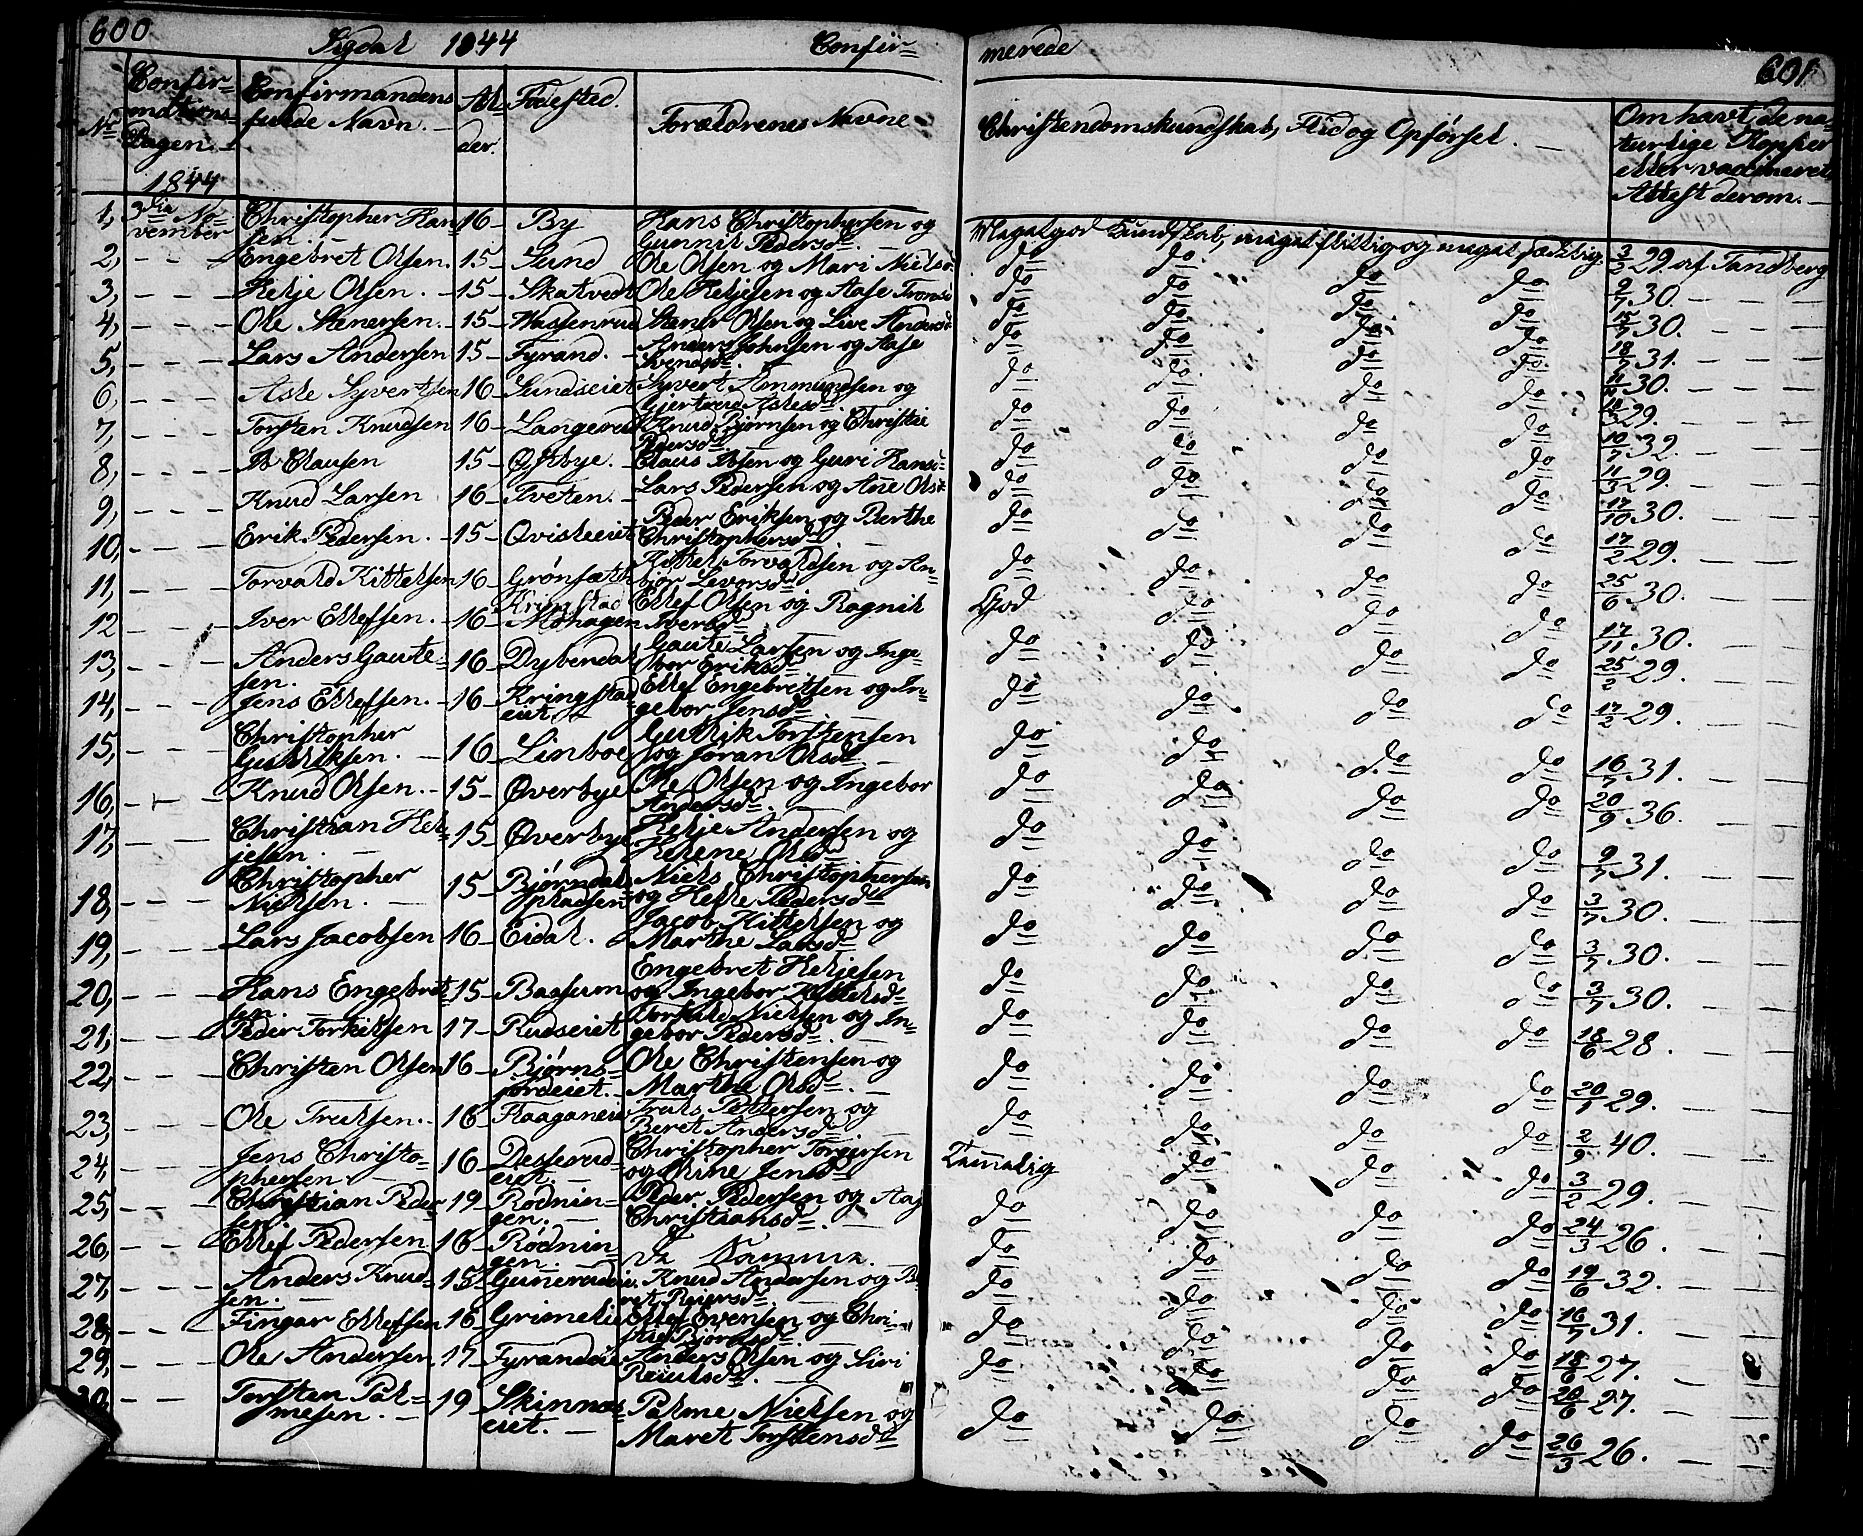 600
Sigdal 1844
Confir=
merede
601
No
Confir=
mations=
Dagen.
1844
Confirmandens
fulde Navn.
Al=
der.
Fødested.
Forældrenes Navne
Christendomskundskab, Flid og Opførsel.
Om havt de na=
turlige Kopper
eller vaccineret,
Attest derom.
1, 3die No= Christopher Han= 16 By Hans Christophersen og Megetgod Kundskab, meget flittig og meget sædelig. 29. af Tandberg
vember sen. Gunnil Pedersd.
2, Engebret Olsen. 15 Lund Ole Olsen og Mari Nielsd. do do do do 2/7 30.
3, Helje Olsen. 15 Skatvedt Ole Heljesen og Aase Tronsd do do do do 30.
4, Ole Stenersen. 15 Stener Olsen og Live Andersd. do do do do 18/7 31.
5, Lars Andersen 15 Fyrand. Anders Johnsen og Aase do do do do 30.
Svendsd.
6, Asle Syvertsen 16 Sundseiet Syvert Ammundsen og do do do do 29.
Gjertrud Aslesd.
7, Torsten Knudsen 16 Langerud Knud Bjørnsen og Christie do do do do 10/7 32.
Pedersd.
8, Ib Clausen 15 Østbye. Claus Ibsen og Guri Hansd. do do do do 11/3 29.
9, Knud Larsen 16 Tveten. Lars Pedersen og Ane Olsd. do do do do 17/10 30.
10, Erik Pedersen. 15 Qvisleeiet Peder Eriksen og Berthe do do do do 17/2 29.
Christophersd.
11, Torvald Kittelsen 16 Kittel Torvaldsen og An= do do do do 25/6 30.
bior Levorsd.
12 Iver Ellefsen. 16 Kringstad Ellef Olsen og Ragnil God do do do 17/11 30.
Mohagen Iversd.
13, Anders Gaute= 16 Dyberdal Gaute Larsen og Inge= do do do do 25/2 29.
sen. bor Eriksd.
14, Jens Ellefsen. 16 Kringstad Ellef Engebretsen og In= do do do do 17/2 29.
eiet gebor Jensd.
15, Christopher 16 Linboe Gulbrik Torstensen do do do do 16/7 31.
Gulbriksen. og Jøran Olsd.
16, Knud Olsen. 15 Øverbye Ole Olsen og Ingebor do do do do 20/9 36.
Andersd.
17, Christian Hel= 15 Øverbye Helje Andersen og do do do do 9/7 31.
jesen. Helene Olsd.
18, Christopher 15 Bjørndals Niels Christophersen do do do do 3/7 30.
Nielsen. pladsen og Helle Pedersd.
19, Lars Jacobsen 16 Eidal. Jacob Kittelsen og do do do do 3/7 30.
Marthe Larsd.
20, Hans Engebret= 15 Baasum Engebret Heljesen do do do do 3/7 30.
sen og Ingebor Kittelsd.
21, Peder Torkilsen 17 Rudseiet Torkild Nielsen og In= do do do do 18/6 28.
gebor Pedersd.
22, Christen Olsen 16 Bjørns= Ole Christensen og do do do do 20/1 29.
jordeiet. Marthe Olsd.
23, Ole Trulsen. 16 Raaganeie Truls Pettersen og do do do do 2/9 40.
Beret Andersd.
24, Jens Christo= 16 Desserud= Christopher Torgersen Tam̅elig do do do 3/2 29.
phersen eiet. og Stine Jensd.
25, Christian Peder= 19 Rødnin= Peder Pedersen og Aag do do do do 24/3 26.
sen gen. Christiansd.
26, Ellef Pedersen 16 Rødnin= do do do do 19/6 32.
gen.
27, Anders Knud= 15 Knud Andersen og Be= do do do do 16/7 31.
sen. ret Reiersd.
28, Fingar Ellefsen 16 Grimelie Ellef Evensen og Chri= do do do do 18/6 27.
stie Bjørnsd.
29, Ole Andersen 17 Fyrandeie Anders Olsen og Siri do do do do 20/6 27.
30, Torsten Pal= 19 Skinnes= Palme Nielsen og do do do do 26/3 26.
mesen. eiet. Maret Torstensd.